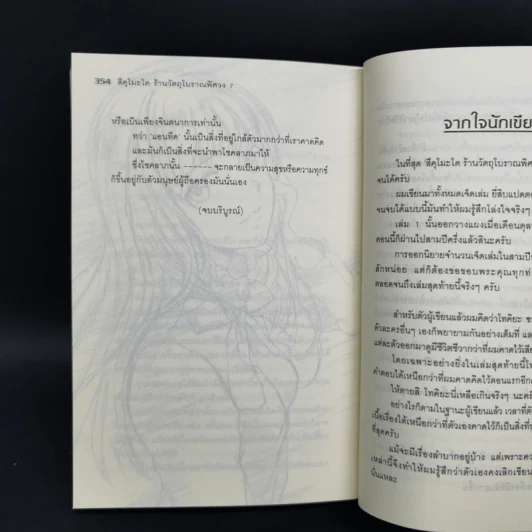 354 สึคุโมะโด ร้านวัตถุโบราณพิศวง 7
หรือเป็นเพียงจินตนาการเท่านั้น
ทว่า 'แอนทีค' นั้นเป็นสิ่งที่อยู่ใกล้ตัวมากกว่าที่เราคาดคิด
และมันก็เป็นสิ่งที่จะนำพาโชคลาภมาให้
ซึ่งโชคลาภนั้น ------ จะกลายเป็นความสุขหรือความทุกข์
ก็ขึ้นอยู่กับตัวมนุษย์ผู้ถือครองมันนั่นเอง
(จบบริบูรณ์)
จากใจนักเขีย
ในที่สุด 'สึคุโมะโด ร้านวัตถุโบราณพิศ
จนได้ครับ
ผมเขียนมาทั้งหมดเจ็ดเล่ม ยี่สิบแปดตอ
จนจบได้แบบนี้มันทำให้ผมรู้สึกโล่งใจจริงๆ
เล่ม 1 นั้นออกวางแผงเมื่อเดือนตุล
ตอนนี้ก็ผ่านไปสามปีครึ่งแล้วสินะครับ
การออกนิยายจำนวนเจ็ดเล่มในสามปี
ลักหน่อย แต่ก็ต้องขอขอบพระคุณทุกท่
ตลอดจนถึงเล่มสุดท้ายนี้จริงๆ ครับ
สำหรับตัวผู้เขียนแล้วผมคิดว่าโทคิยะ ซ
ตัวละครอื่นๆ เองก็พยายามกันอย่างเต็มที่ แล
แต่ละตัวออกมาดูมีชีวิตชีวากว่าที่ผมคาดไว้เสีย
โดยเฉพาะอย่างยิ่งในเล่มสุดท้ายนี้โท
คำตอบได้เหนือกว่าที่ผมคาดคิดไว้ตอนแรกอีก
ให้ตายสิ โทคิยะนี่เหลือเกินจริงๆ นะครั
อย่างไรก็ตามในฐานะผู้เขียนแล้ว เวลาที่ตั
เนื้อเรื่องได้เหนือกว่าที่ตัวเองคาดไว้ก็เป็นสิ่งที่น
ที่สุดครับ
แม้จะมีเรื่องลำบากอยู่บ้าง แต่เพราะคว
เหล่านี้จึงทำให้ผมรู้สึกว่าตัวเองคงเลิกเขียน
นั่นแหละ